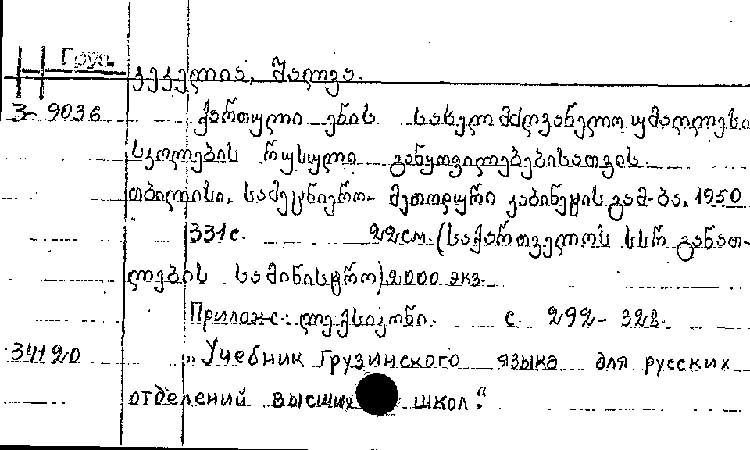 Груз.
კეკელია, შალვა.
3- 9036
ქართული ენის სახელმძღვანელო უმაღლესი
სკოლების რუსული განყოფილებებისათვის.
თბილისი, სამეცნიერო-მეთოდური კაბინეტის გამ-ბა, 1950
331 с. 22 см. (საქართველოს სსრ განათ-
ლების სამინისტრო) 2000 экз.
Прилож.: ლექსიკონი. с. 292-328.
34120 „Учебник грузинского языка для русских
отделений высших школ."